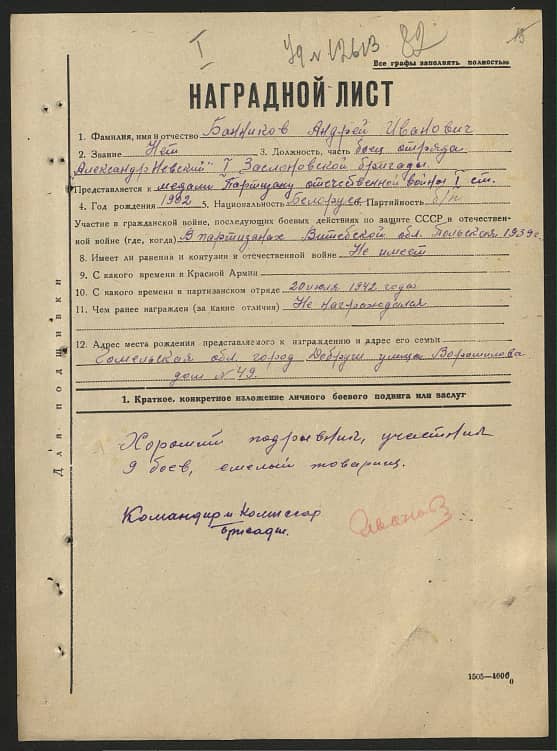 I
Уд № 12613 82
15
Все графы заполнять полностью
НАГРАДНОЙ ЛИСТ
1. Фамилия, имя и отчество Банников Андрей Иванович
2. Звание Нет 3. Должность, часть боец отряда
"Александр Невский" I Заслоновской бригады.
Представляется к медали "Партизану отечественной войны" I ст.
4. Год рождения 1902 5. Национальность Белорусс Партийность б/п
Участие в гражданской войне, последующих боевых действиях по защите СССР и отечествен-
ной войне (где, когда) В партизанах Витебской обл. Польская 1939г.
8. Имеет ли ранения и контузии в отечественной войне Не имеет
9. С какого времени в Красной Армии
10. С какого времени в партизанском отряде 20 июля 1942 года
11. Чем ранее награжден (за какие отличия) Не награждался
12. Адрес места рождения представляемого к награждению и адрес его семьи
Гомельская обл. город Добруш улица Ворошилова
дом № 49.
1. Краткое, конкретное изложение личного боевого подвига или заслуг
Хороший подрывник, участник
9 боев, смелый товарищ.
Командир и Комиссар
бригады.
Для подшивки
1505—4600
0